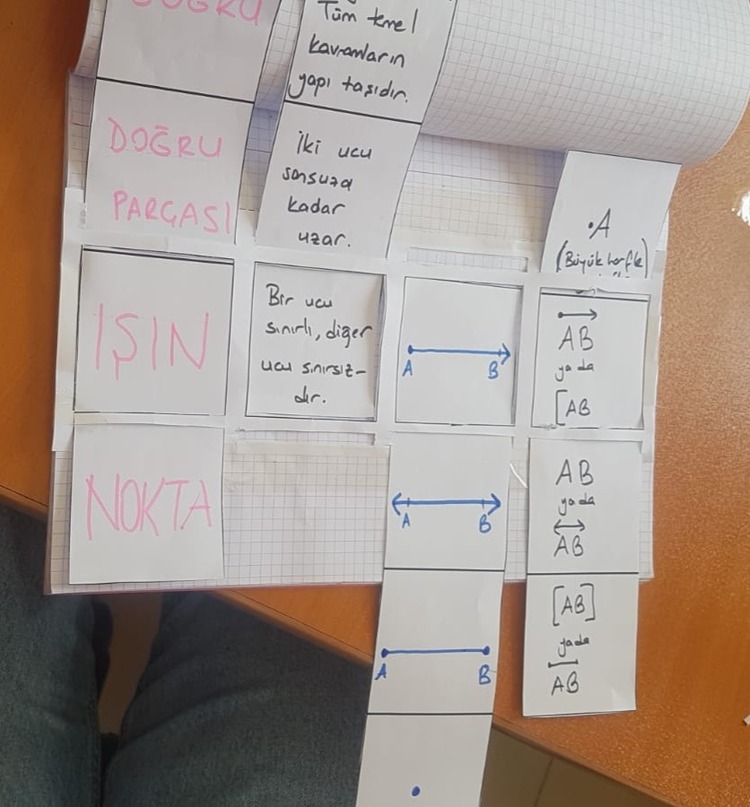 DOĞRU
DOĞRU
PARÇASI
IŞIN
NOKTA
Tüm temel
kavramların
yapı taşıdır.
İki ucu
sonsuza
kadar
uzar.
Bir ucu
sınırlı, diğer
ucu sınırsız-
dır.
A B
A B
A B
.A
(Büyük harfle
AB
ya da
[AB
AB
ya da
AB
[AB]
ya da
AB